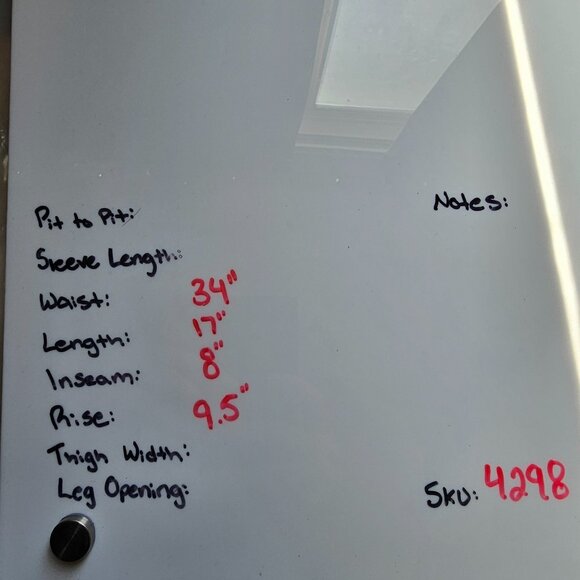 Notes:
Pit to Pit:
Sleeve Length:
Waist: 34"
Length: 17"
Inseam: 8"
Rise: 9.5"
Thigh Width:
Leg Opening:
SKU: 4298